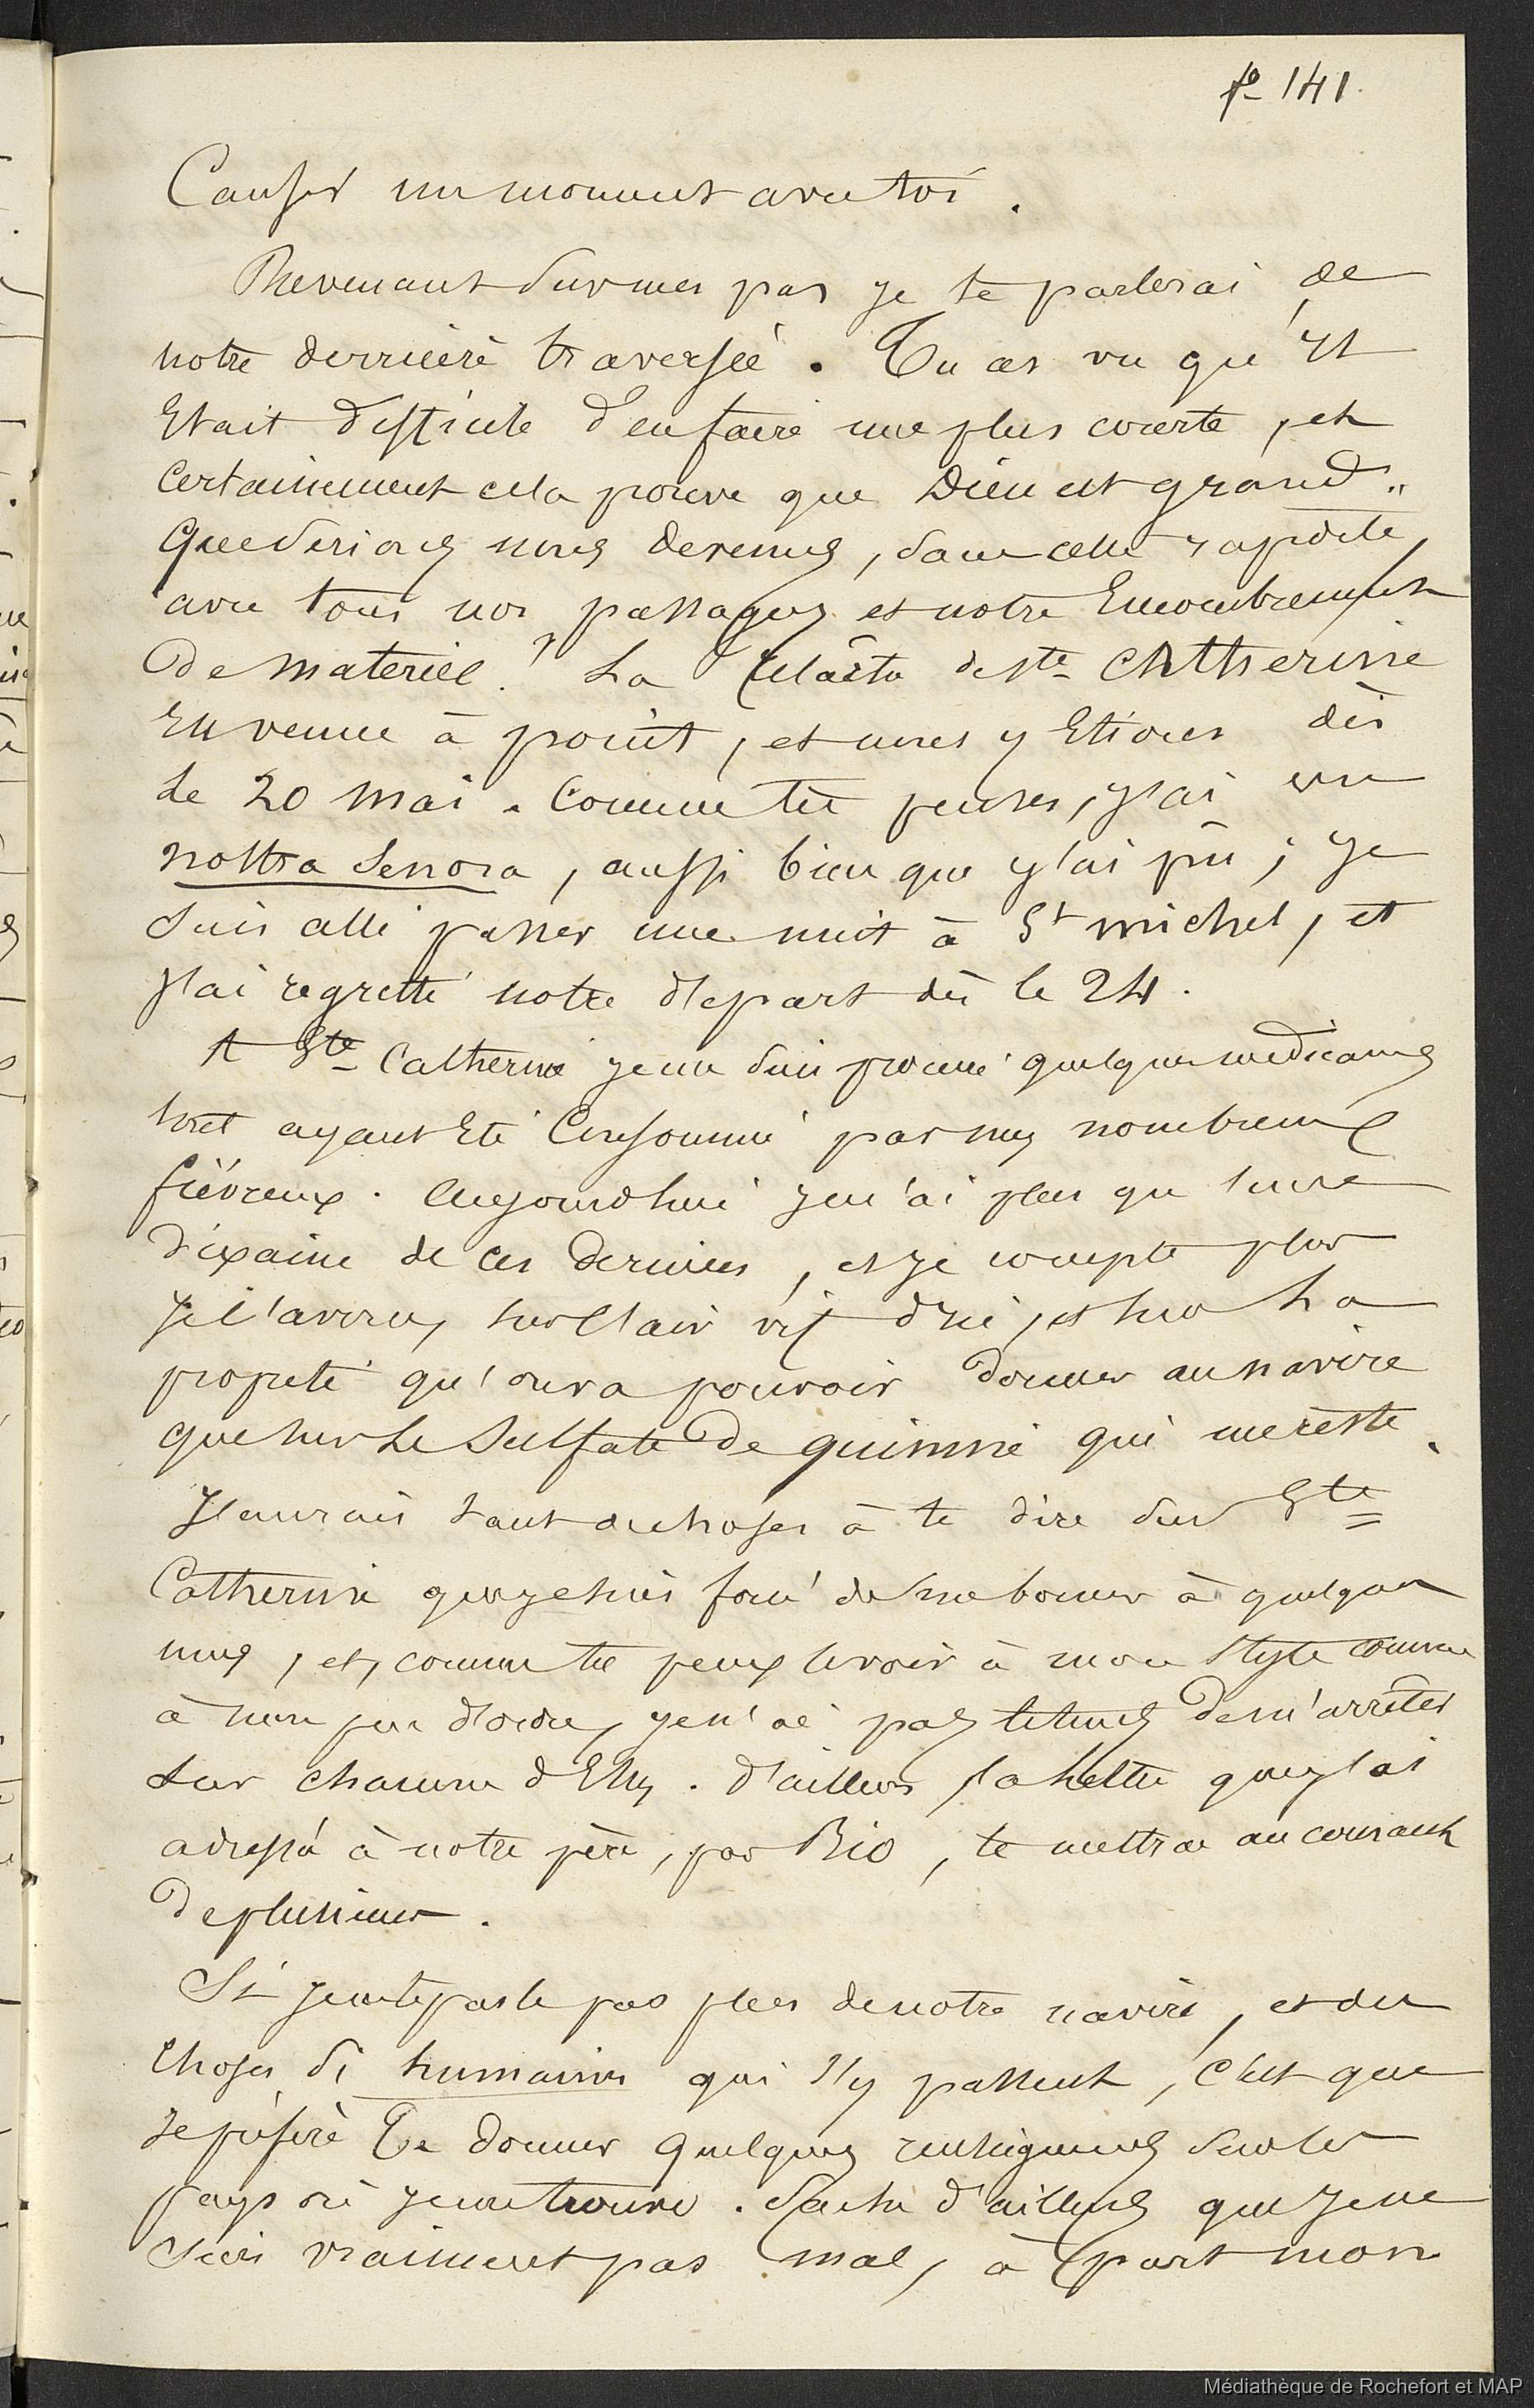 fo 141
Causer un moment avec toi.
Revenant sur mes pas je te parlerai de
notre dernière traversée. Tu as vu qu'il
Etait difficile d'en faire une plus courte, et
certainement cela prouve que Dieu est grand"
Que serions nous devenus, sans cette rapidité,
avec tous nos passagers et notre Encombrement
De materiel? La de Ste Catherine
En venue à point, et nous y Etions dès
Le 20 mai. Comme tu penses, j'ai vu
nostra Senora, aussi bien que j'ai pû; je
suis allé passer une nuit à St michel, et
j'ai regretté notre départ dès le 24.
A Ste Catherine je me suis procuré quelques medicamens
tout ayant Eté Consommé par mes nombreux
fiévreux. Aujourdhui je n'ai plus qu'une
dixaine de ces derniers, et je compte plus
je l'avoue, sur l'air vif d'ici, et sur La
propreté qu'on va pouvoir donner au navire
que sur Le Sulfate De quinine qui me reste.
J'aurais tant de choses à te dire sur Ste
Catherine que je suis forcé de me borner à quelques
unes, et, comme tu peux le voir à mon style comme
à mon peu d'ordre, je n'ai pas le tems de m'arrêter
sur chacune d'Elles. D'ailleurs la lettre que j'ai
adressé à notre père, par Rio, te mettra au courant
de plusieurs.
Si je ne te parle pas plus de notre navire, et des
choses si humaines qui s'y passent, c'est que
je préfère Te donner quelques renseignemens sur les
pays où je me trouve. Sache d'ailleurs que je ne
suis vraiment pas mal, à part mon
Médiathèque de Rochefort et MAP